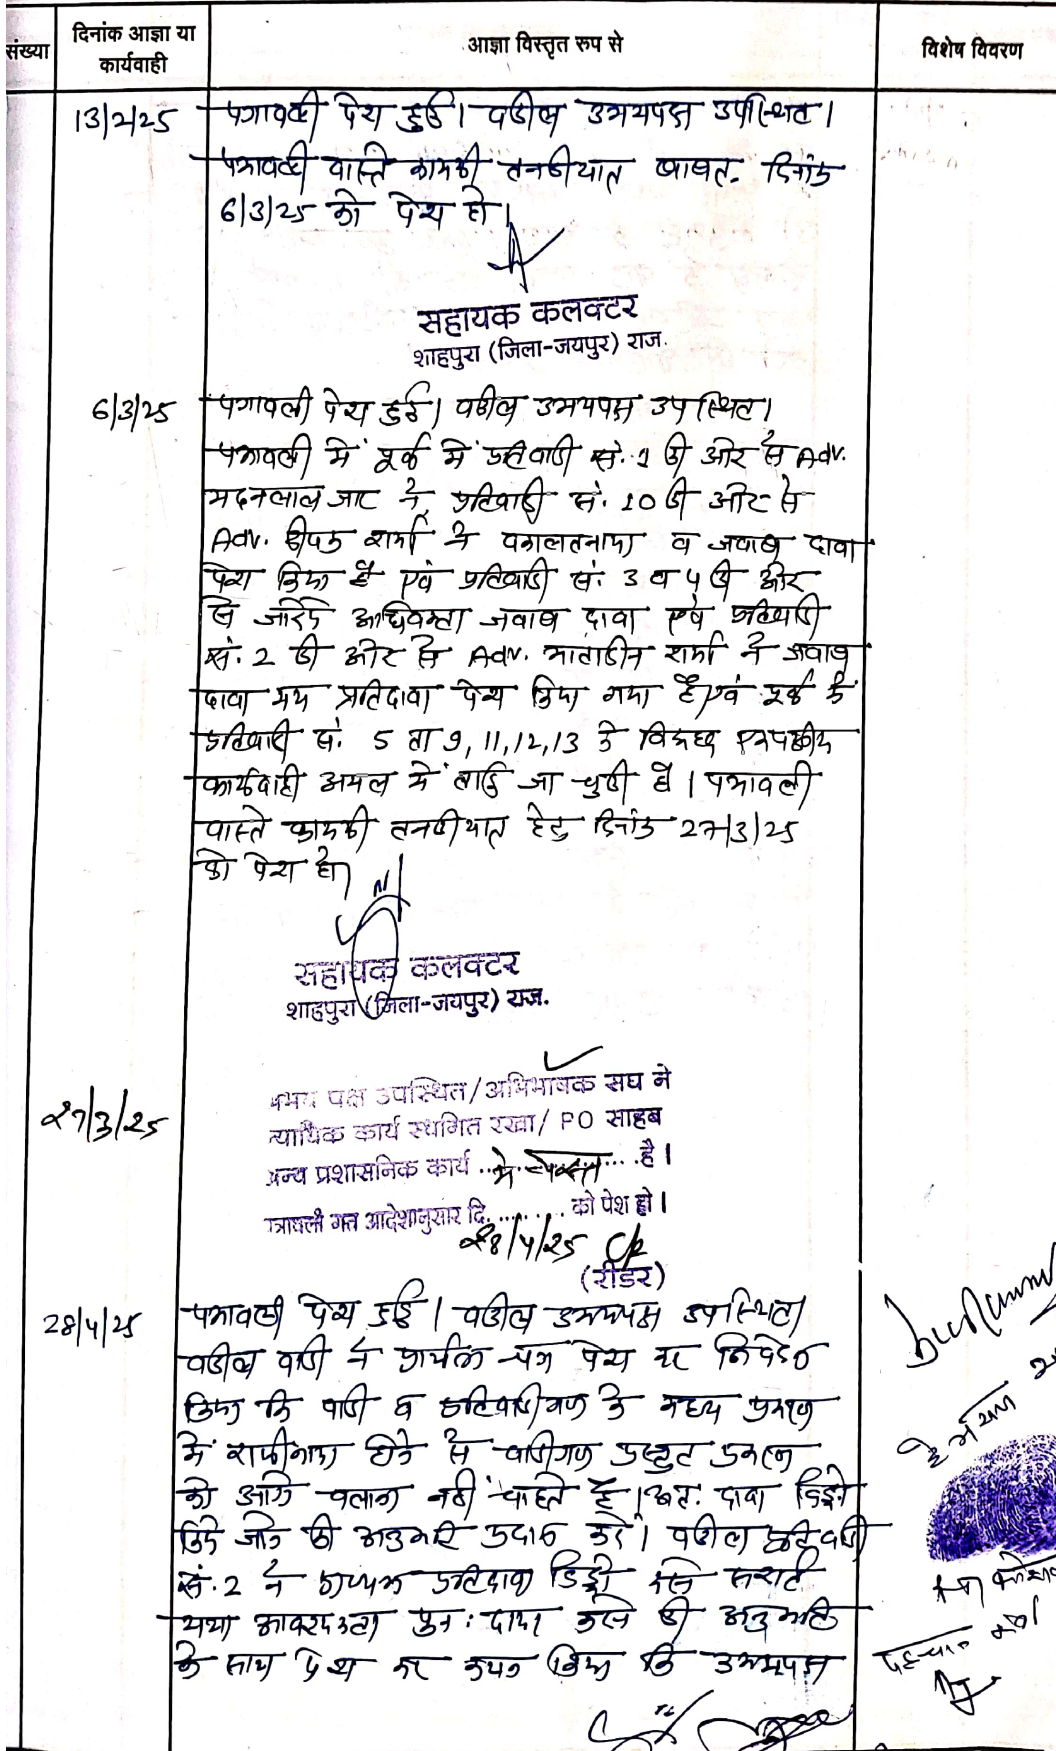 संख्या
दिनांक आज्ञा या कार्यवाही
आज्ञा विस्तृत रूप से
विशेष विवरण
13/2/25
पत्रावली पेश हुई। वकील उभयपक्ष उपस्थित।
पत्रावली वास्ते कायमी तनकीयात बाबत दिनांक
6/3/25 को पेश हो।
सहायक कलक्टर
शाहपुरा (जिला-जयपुर) राज.
6/3/25
पत्रावली पेश हुई। वकील उभयपक्ष उपस्थित।
पत्रावली में पूर्व में प्रतिवादी सं. 1 की ओर से Adv.
मदनलाल जाट ने, प्रतिवादी सं. 10 की ओर से
Adv. दीपक शर्मा ने वकालतनामा व जवाब दावा
पेश किया है एवं प्रतिवादी सं. 3 व 4 की ओर
से जरिये अधिवक्ता जवाब दावा एवं प्रतिवादी
सं. 2 की ओर से Adv. मातादीन शर्मा ने जवाब
दावा मय प्रतिदावा पेश किया गया है एवं पूर्व में
प्रतिवादी सं. 5 ता 9, 11, 12, 13 के विरूद्ध एकपक्षीय
कार्यवाही अमल में लाई जा चुकी है। पत्रावली
वास्ते कायमी तनकीयात हेतु दिनांक 27/3/25
को पेश हो।
सहायक कलक्टर
शाहपुरा (जिला-जयपुर) राज.
27/3/25
उभय पक्ष उपस्थित/अभिभाषक संघ ने
न्यायिक कार्य स्थगित रखा/ PO साहब
अन्य प्रशासनिक कार्य ..मे व्यस्त.... है।
पत्रावली गत आदेशानुसार दि. ........ को पेश हो।
28/4/25
(रीडर)
28/4/25
पत्रावली पेश हुई। वकील उभयपक्ष उपस्थित।
वकील वादी ने प्रार्थना पत्र पेश कर निवेदन
किया कि वादी व प्रतिवादीगण के मध्य प्रकरण
में राजीनामा होने से वादीगण प्रस्तुत प्रकरण
को आगे चलाना नहीं चाहते हैं। अतः दावा विड्रो
किये जाने की अनुमति प्रदान करें। वकील प्रतिवादी
सं. 2 ने प्रतिदावा विड्रो
यथा आवश्यकता पुनः दावा करने की अनुमति
के साथ पेश कर कथन किया कि उभयपक्ष
पहचान कर्ता